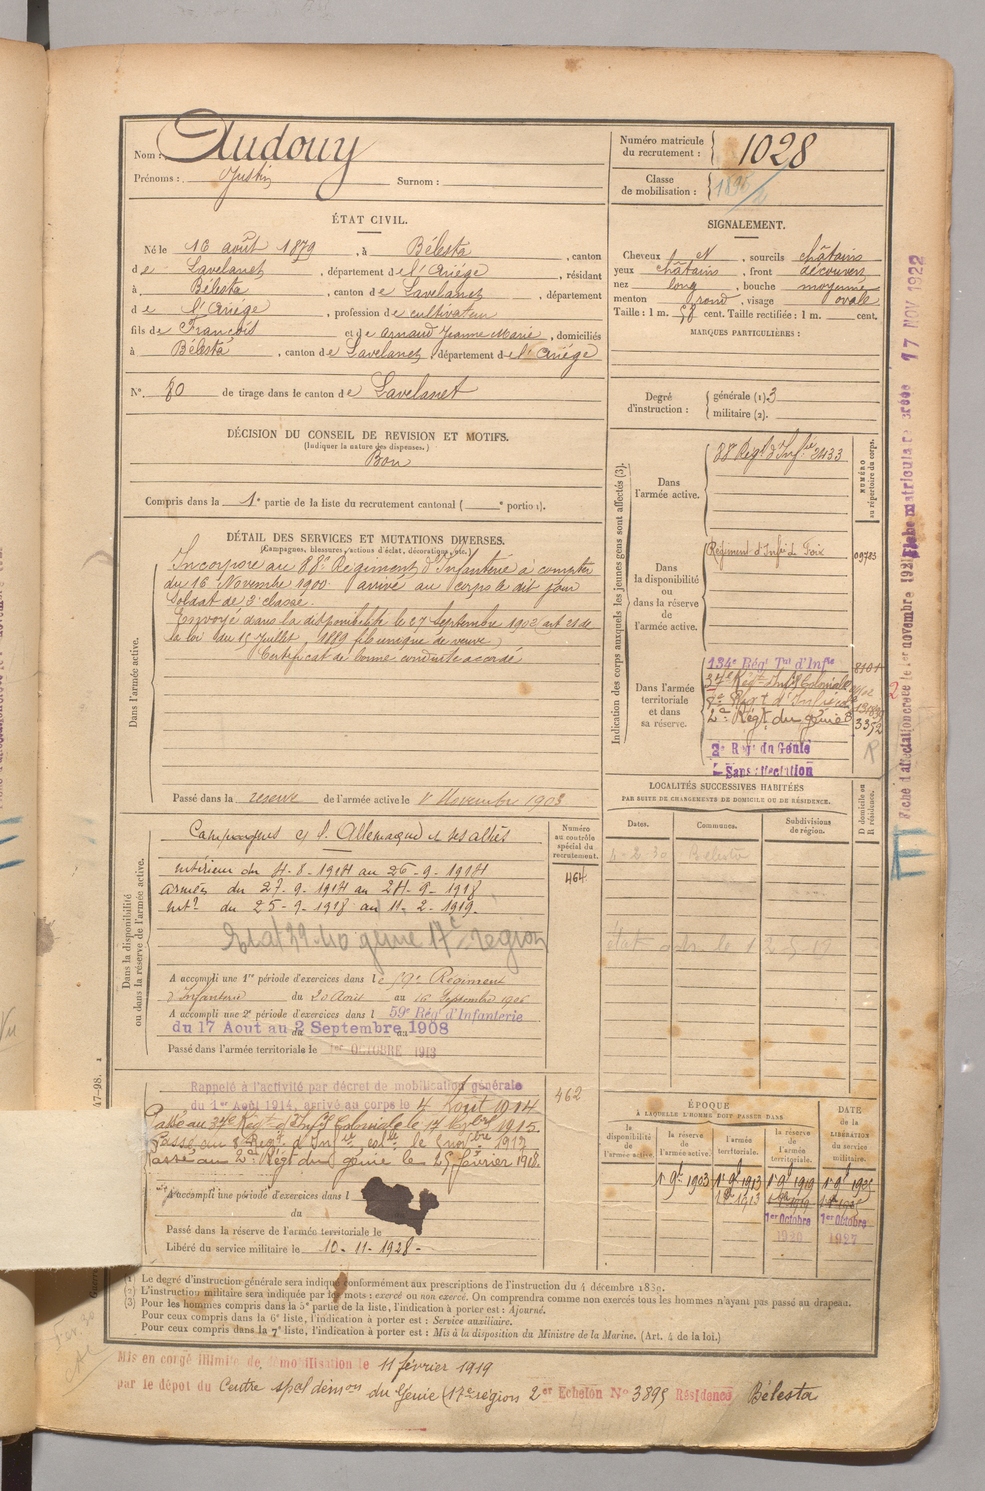 Nom : Audouy
Prénoms : Justin Surnom :
Numéro matricule du recrutement : 1028
Classe de mobilisation :
ÉTAT CIVIL.
Né le 16 août 1879, à Bélesta, canton
de Lavelanet, département de l'Ariège, résidant
à Bélesta, canton de Lavelanet, département
de l'Ariège, profession de cultivateur
fils de François et de Arnaud Jeanne Marie, domiciliés
à Bélesta, canton de Lavelanet, département de l'Ariège
N° 80 de tirage dans le canton de Lavelanet
DÉCISION DU CONSEIL DE REVISION ET MOTIFS.
(Indiquer la nature des dispenses.)
Bon
Compris dans la 1e partie de la liste du recrutement cantonal ( e portion).
SIGNALEMENT.
Cheveux N, sourcils châtains
yeux châtains, front découvert
nez long, bouche moyenne
menton rond, visage ovale
Taille : 1 m. 58 cent. Taille rectifiée : 1 m. cent.
MARQUES PARTICULIÈRES :
Degré d'instruction : générale (1) 3
militaire (2).
DÉTAIL DES SERVICES ET MUTATIONS DIVERSES.
(Campagnes, blessures, actions d'éclat, décorations, etc.)
Dans l'armée active.
Incorporé au 88e Régiment d'Infanterie à compter
du 16 Novembre 1900. arrivé au corps le dit jour
Soldat de 2e classe.
Envoyé dans la disponibilité le 27 Septembre 1902 (art 21 de
la loi du 15 Juillet 1889 fils unique de veuve)
Certificat de bonne conduite accordé
Passé dans la réserve de l'armée active le 1r Novembre 1903
Indication des corps auxquels les jeunes gens sont affectés (3).
Dans l'armée active.
88e Régt d'Infie 2433
NUMÉRO au répertoire du corps.
Dans la disponibilité ou dans la réserve de l'armée active.
Régiment d'Infie de Foix
09723
Dans l'armée territoriale et dans sa réserve.
134e Régt Tal d'Infie
37e Régt d'Infie Coloniale
2e Régt du génie 3352
2e Régt du Génie
Sans affectation
Dans la disponibilité ou dans la réserve de l'armée active.
Campagnes c/ l'Allemagne et ses alliés
Intérieur du 4-8-1914 au 26-9-1914
armées du 27-9-1914 au 24-9-1918
Intr du 25-9-1918 au 11-2-1919.
génie 17e région
Numéro au contrôle spécial du recrutement.
464
A accompli une 1re période d'exercices dans le 59e Régiment
d'Infanterie du 20 Août au 16 Septembre 1906
A accompli une 2e période d'exercices dans l 59e Régt d'Infanterie
du 17 Aout au 2 Septembre 1908
Passé dans l'armée territoriale le 1er OCTOBRE 1913
LOCALITÉS SUCCESSIVES HABITÉES
PAR SUITE DE CHANGEMENTS DE DOMICILE OU DE RÉSIDENCE.
Dates. Communes. Subdivisions de région. D domicile ou R résidence.
Bélesta
Rappelé à l'activité par décret de mobilisation générale
du 1er Août 1914, arrivé au corps le 4 Août 1914
462
Passé au 37e Régt d'Infie Coloniale le 17 1915.
Passé au 2e Régt du génie le 25 février 1918.
A accompli une période d'exercices dans l
du
Passé dans la réserve de l'armée territoriale le
Libéré du service militaire le 10-11-1928-
ÉPOQUE
À LAQUELLE L'HOMME DOIT PASSER DANS
la disponibilité de l'armée active. la réserve de l'armée active. l'armée territoriale. la réserve de l'armée territoriale.
DATE DE LA LIBÉRATION du service militaire.
1er Octobre 1920
1er Octobre 1927
(1) Le degré d'instruction générale sera indiqué conformément aux prescriptions de l'instruction du 4 décembre 1889.
(2) L'instruction militaire sera indiquée par les mots : exercé ou non exercé. On comprendra comme non exercés tous les hommes n'ayant pas passé au drapeau.
(3) Pour les hommes compris dans la 5e partie de la liste, l'indication à porter est : Ajourné.
Pour ceux compris dans la 6e liste, l'indication à porter est : Service auxiliaire.
Pour ceux compris dans la 7e liste, l'indication à porter est : Mis à la disposition du Ministre de la Marine. (Art. 4 de la loi.)
Mis en congé illimité de démobilisation le 11 février 1919
par le dépôt du Centre spal démon du Génie (17e région 2er Echelon N° 3895 Résidence Bélesta
17 NOV 1922